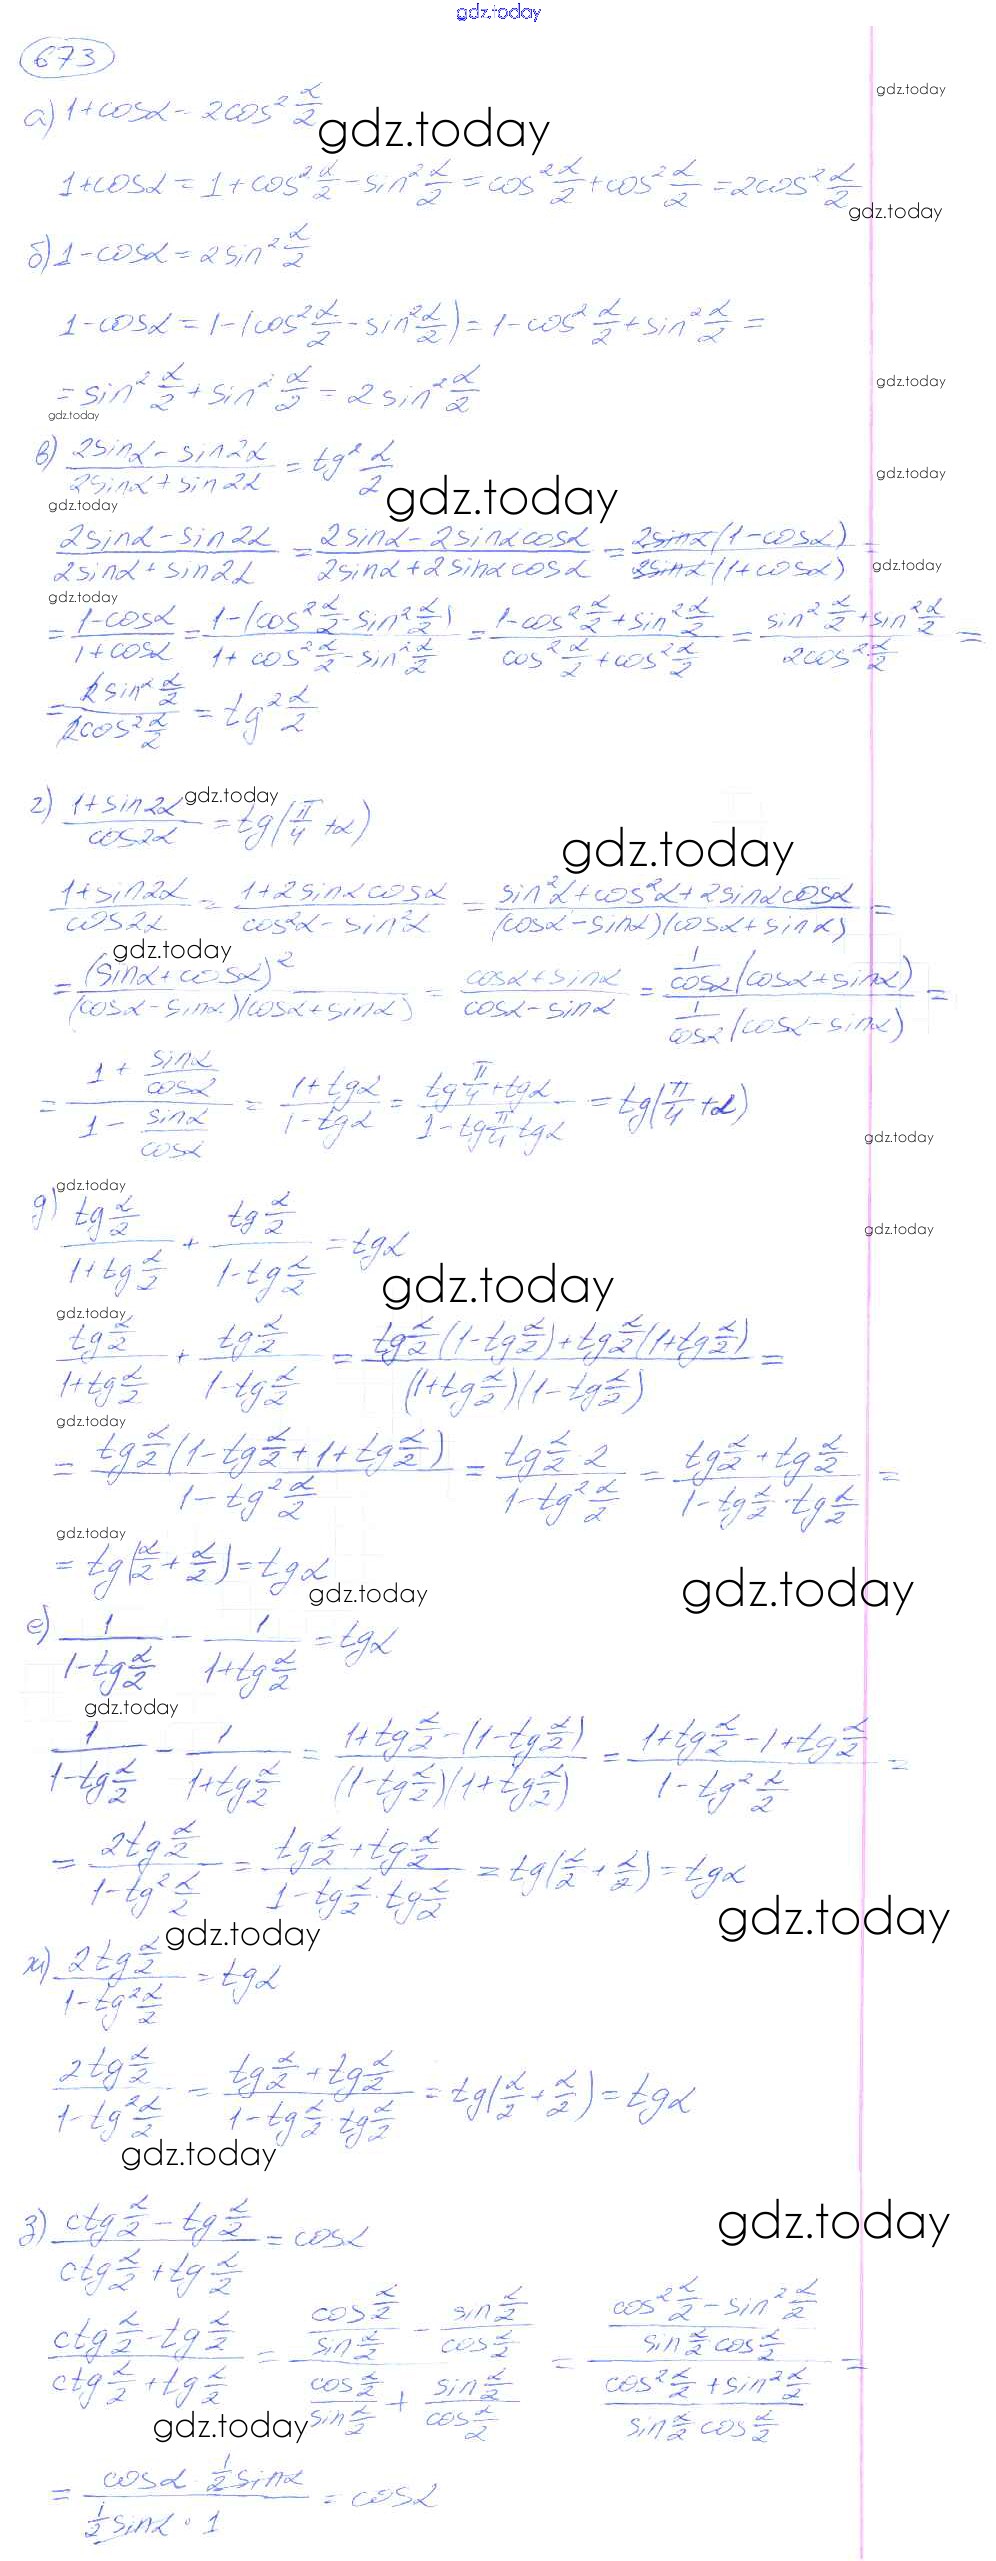 gdz.today
673
а) 1+cosα = 2cos² α/2
1+cosα = 1+cos² α/2 - sin² α/2 = cos² α/2 + cos² α/2 = 2cos² α/2
б) 1-cosα = 2sin² α/2
1-cosα = 1-(cos² α/2 - sin² α/2) = 1-cos² α/2 + sin² α/2 =
= sin² α/2 + sin² α/2 = 2 sin² α/2
в) (2sinα - sin2α)/(2sinα + sin2α) = tg² α/2
(2sinα - sin2α)/(2sinα + sin2α) = (2sinα - 2sinαcosα)/(2sinα + 2sinαcosα) = (2sinα(1-cosα))/(2sinα(1+cosα)) =
= (1-cosα)/(1+cosα) = (1-(cos² α/2 - sin² α/2))/(1+cos² α/2 - sin² α/2) = (1-cos² α/2 + sin² α/2)/(cos² α/2 + cos² α/2) = (sin² α/2 + sin² α/2)/(2cos² α/2) =
= (2sin² α/2)/(2cos² α/2) = tg² α/2
г) (1+sin2α)/(cos2α) = tg(π/4 + α)
(1+sin2α)/(cos2α) = (1+2sinαcosα)/(cos²α - sin²α) = (sin²α + cos²α + 2sinαcosα)/((cosα - sinα)(cosα + sinα)) =
= (sinα + cosα)²/((cosα - sinα)(cosα + sinα)) = (cosα + sinα)/(cosα - sinα) = (1/cosα (cosα + sinα))/(1/cosα (cosα - sinα)) =
= (1 + sinα/cosα)/(1 - sinα/cosα) = (1+tgα)/(1-tgα) = (tg π/4 + tgα)/(1 - tg π/4 tgα) = tg(π/4 + α)
д) (tg α/2)/(1+tg α/2) + (tg α/2)/(1-tg α/2) = tgα
(tg α/2)/(1+tg α/2) + (tg α/2)/(1-tg α/2) = (tg α/2 (1-tg α/2) + tg α/2 (1+tg α/2))/((1+tg α/2)(1-tg α/2)) =
= (tg α/2 (1-tg α/2 + 1 + tg α/2))/(1-tg² α/2) = (tg α/2 · 2)/(1-tg² α/2) = (tg α/2 + tg α/2)/(1-tg α/2 · tg α/2) =
= tg(α/2 + α/2) = tgα
е) 1/(1-tg α/2) - 1/(1+tg α/2) = tgα
1/(1-tg α/2) - 1/(1+tg α/2) = (1+tg α/2 - (1-tg α/2))/((1-tg α/2)(1+tg α/2)) = (1+tg α/2 - 1 + tg α/2)/(1-tg² α/2) =
= (2tg α/2)/(1-tg² α/2) = (tg α/2 + tg α/2)/(1-tg α/2 · tg α/2) = tg(α/2 + α/2) = tgα
ж) (2tg α/2)/(1-tg² α/2) = tgα
(2tg α/2)/(1-tg² α/2) = (tg α/2 + tg α/2)/(1-tg α/2 · tg α/2) = tg(α/2 + α/2) = tgα
з) (ctg α/2 - tg α/2)/(ctg α/2 + tg α/2) = cosα
(ctg α/2 - tg α/2)/(ctg α/2 + tg α/2) = ((cos α/2)/(sin α/2) - (sin α/2)/(cos α/2))/((cos α/2)/(sin α/2) + (sin α/2)/(cos α/2)) = ((cos² α/2 - sin² α/2)/(sin α/2 cos α/2))/((cos² α/2 + sin² α/2)/(sin α/2 cos α/2)) =
= (cosα · 1/2 sinα)/(1/2 sinα · 1) = cosα